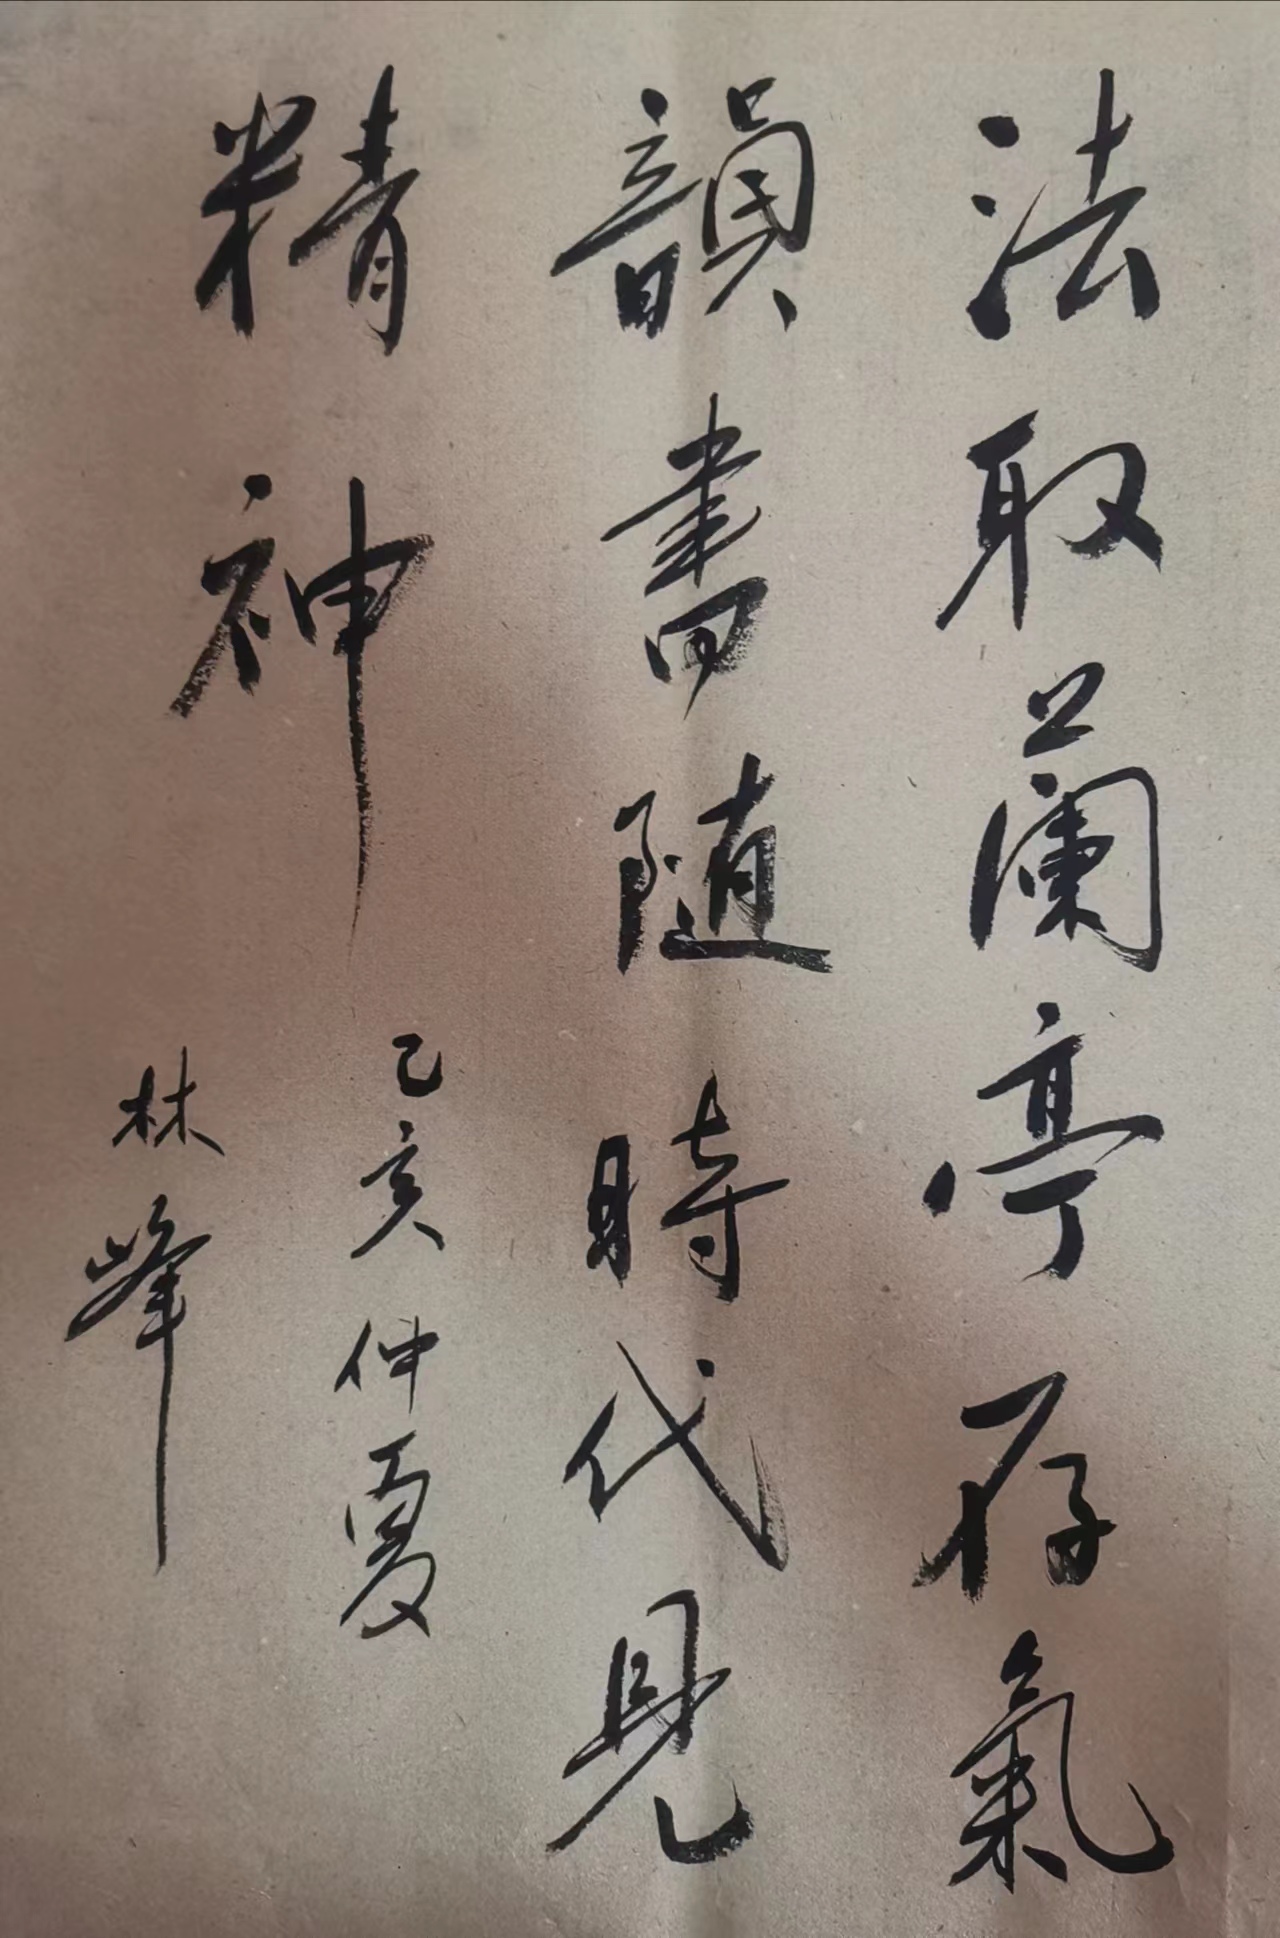 法取蘭亭存氣
韻書隨時代見
精神
己亥仲夏
林峰